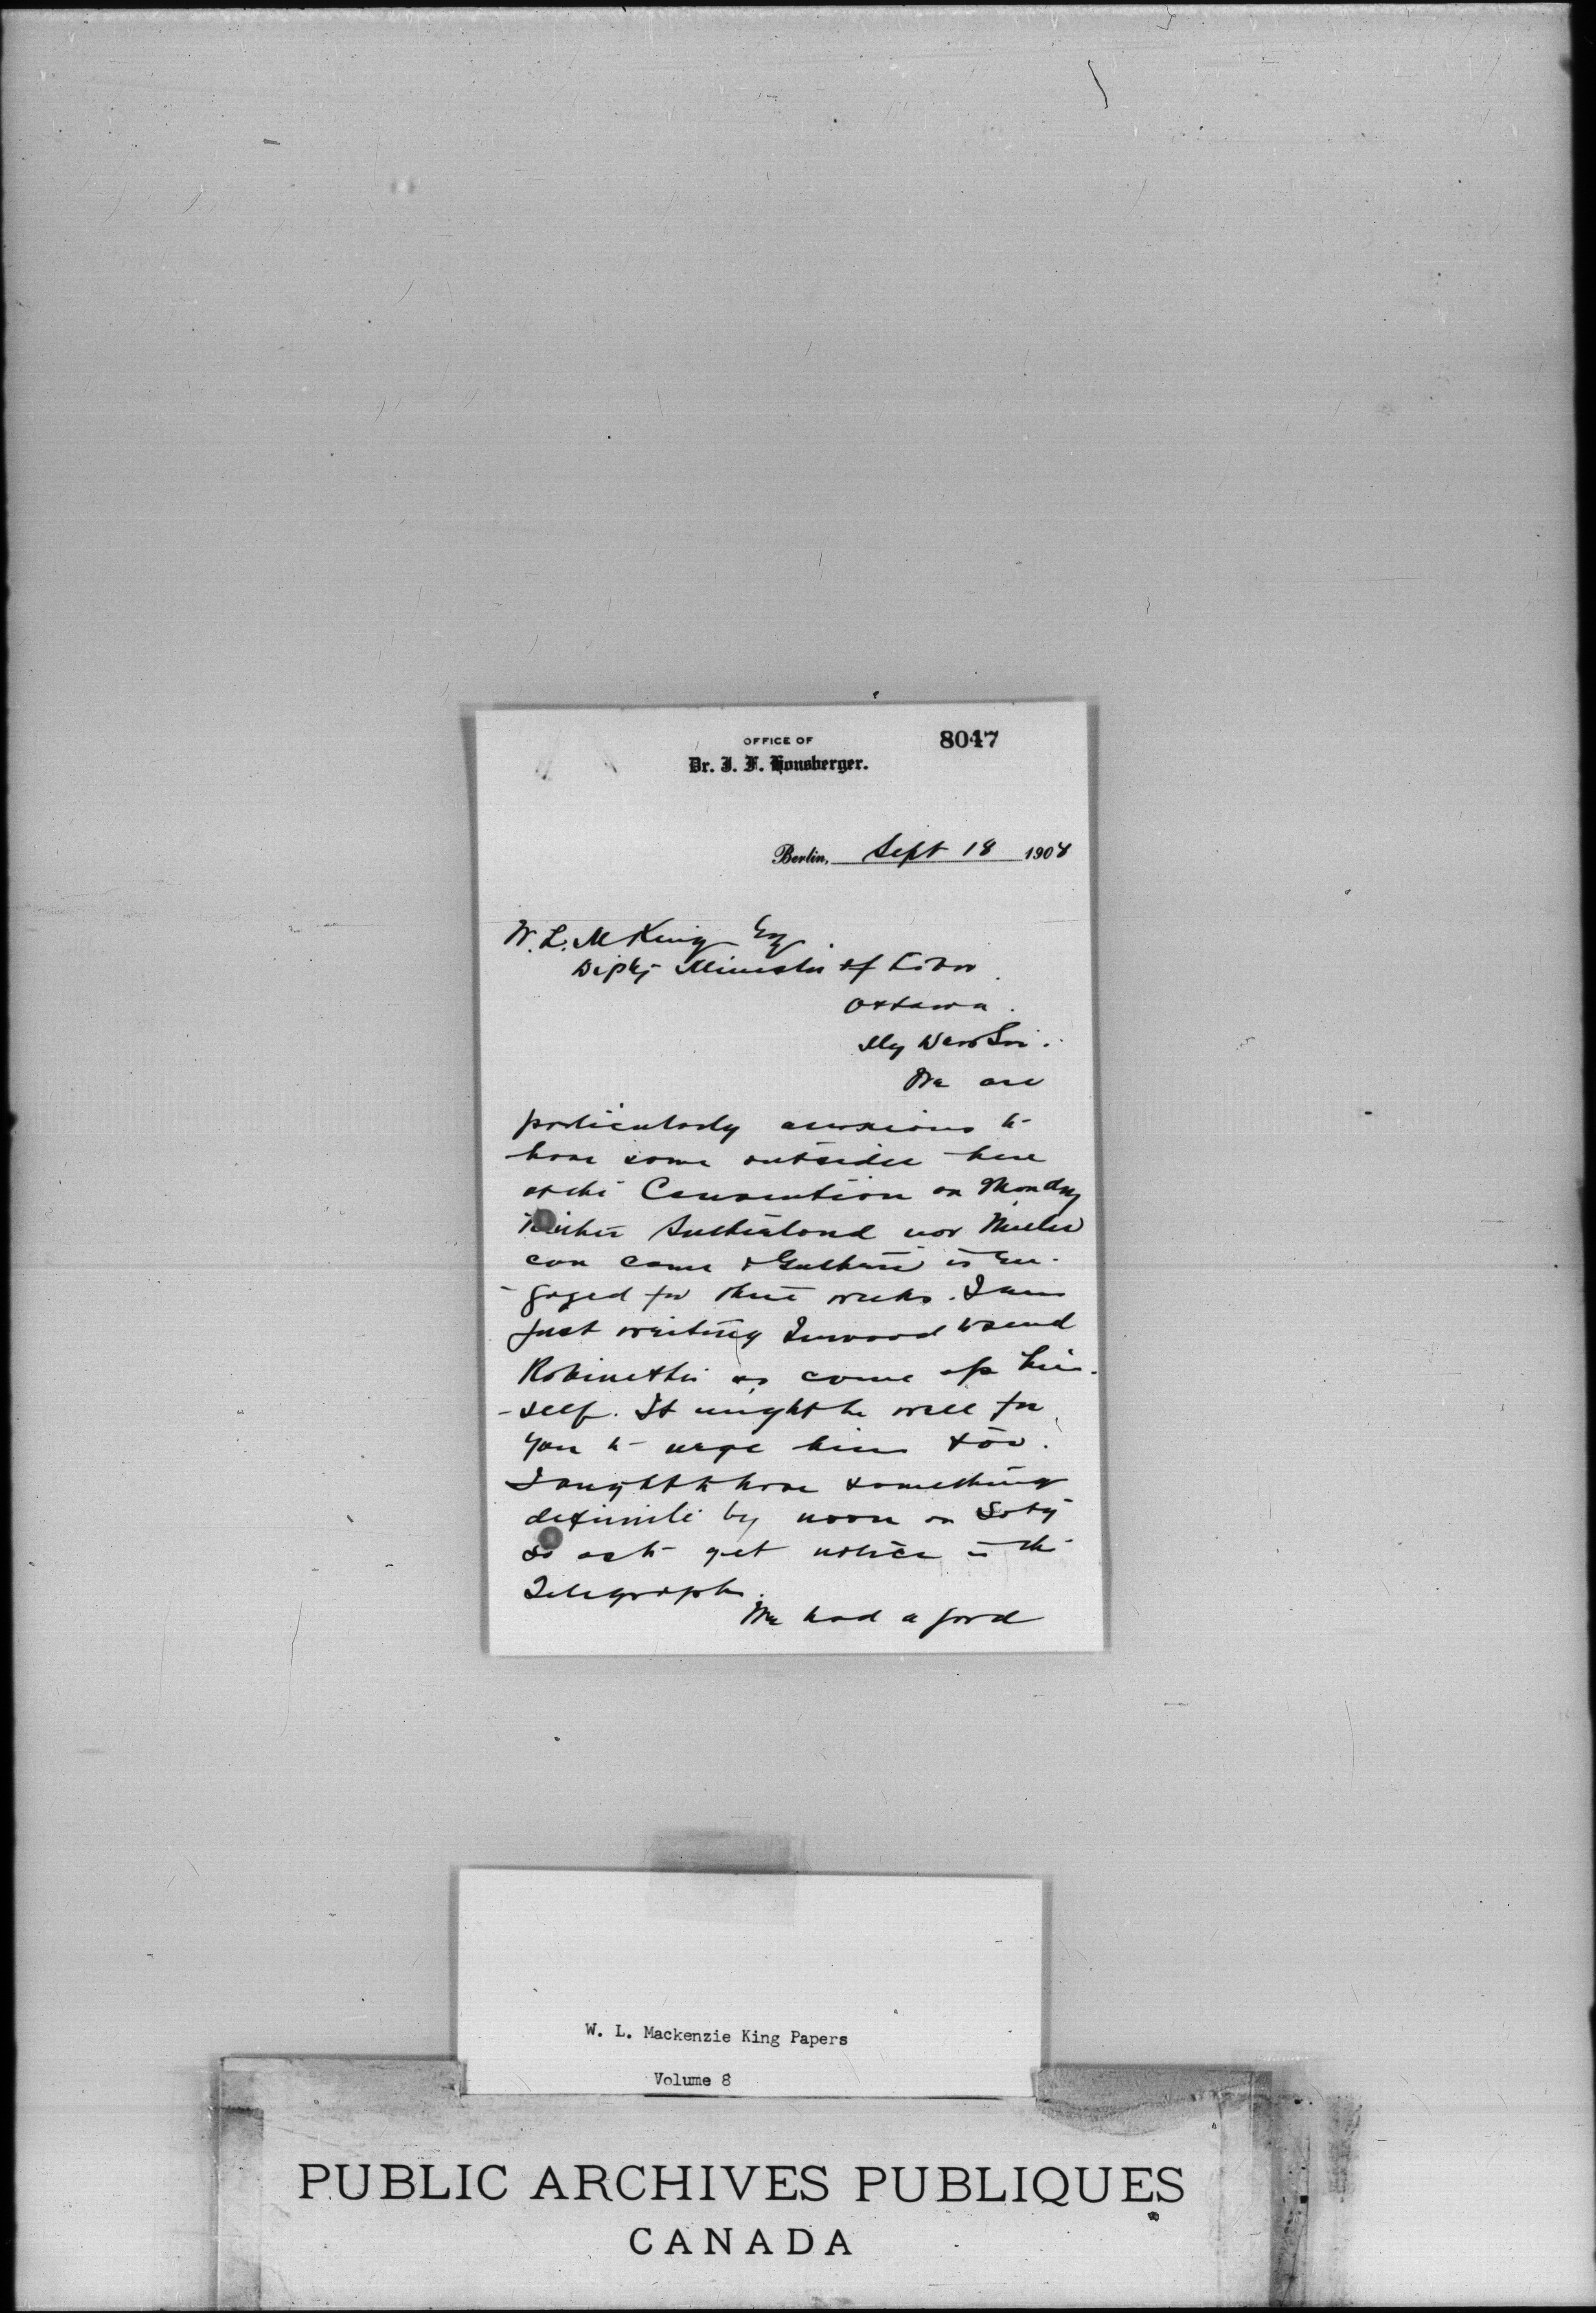 OFFICE OF
8047
Dr. J. F. Honsberger.
Berlin, Sept 18 1908
W. L. M King Esq
Depty Minister of Labor
Ottawa.
My Dear Sir.
We are
particularly anxious to
have some outsider here
at the Convention on Monday
Neither Sutherland nor Miller
can come & Guthrie is en-
-gaged for three weeks. I am
just writing Inwood to send
Robinette or come up him-
-self. It might be well for
you to urge him too.
I ought to have something
definite by noon on Saty
so as to get notice in the
Telegraph.
We had a good
W. L. Mackenzie King Papers
Volume 8
PUBLIC ARCHIVES PUBLIQUES
CANADA